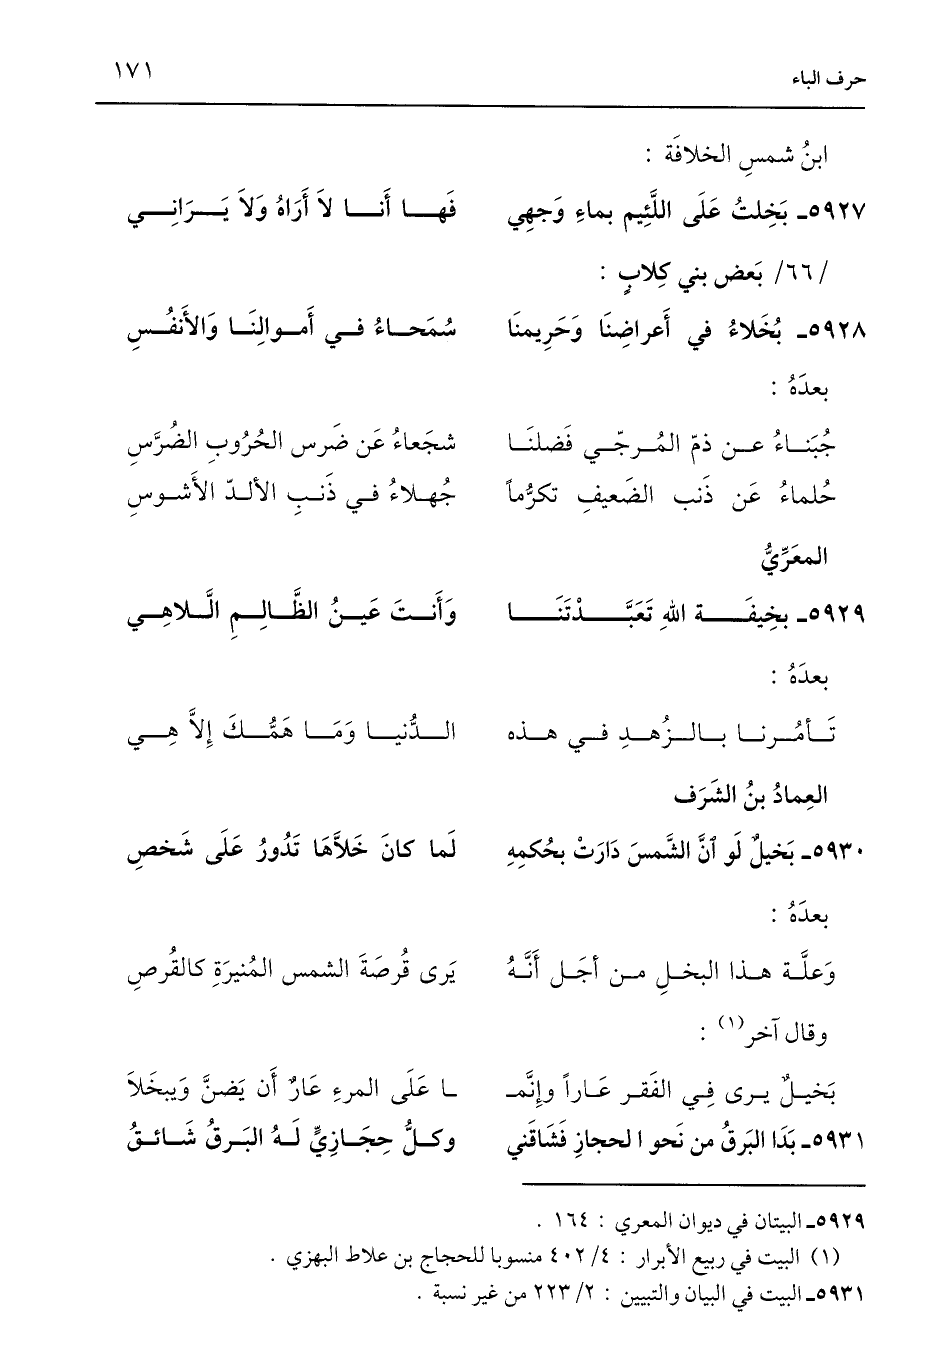 حرف الباء ١٧١
ابنُ شمسِ الخلافَة :
٥٩٢٧ـ بَخِلتُ عَلَى اللَّئِيم بماءِ وَجهِي فَهـا أَنـا لاَ أَرَاهُ وَلاَ يَـرَانِـي
/٦٦/ بَعض بني كِلابٍ :
٥٩٢٨ـ بُخَلاءُ في أَعراضِنَا وَحَرِيمنَا سُمَحـاءُ فـي أَمـوالنَـا وَالأَنفُـسِ
بعدَهُ :
جُبَنـاءُ عـن ذمّ المُـرجّـي فَضلنَـا شجَعاءُ عَن ضَرس الحُرُوبِ الضُرَّسِ
حُلماءُ عَن ذَنب الضَعيفِ تكرُّماً جُهـلاءُ فـي ذَنـبِ الألـدّ الأَشـوسِ
المعَرِّيُّ
٥٩٢٩ـ بخِيفَـة اللهِ تَعَبَّـدْتَنَـا وَأَنـتَ عَيـنُ الظَّـالِـمِ الَّـلاهِـي
بعدَهُ :
تَـأمُـرنـا بـالـزُهـدِ فـي هـذه الـدُّنيـا وَمَـا هَمُّـكَ إلاَّ هِـي
العِمادُ بنُ الشَرَف
٥٩٣٠ـ بَخيلٌ لَو اَنَّ الشَّمسَ دَارَتْ بحُكمِهِ لَما كانَ خَلاَّهَا تَدُورُ عَلَى شَخصِ
بعدَهُ :
وَعلَّـة هـذا البخـلِ مـن أجَـل أَنَّـهُ يَرى قُرصَةَ الشمس المُنيرَةِ كالقُرصِ
وقال آخر(١) :
بَخيـلٌ يـرى فِـي الفَقـر عَـاراً وإنَّمـ ـا عَلَى المرءِ عَارٌ أَن يَضنَّ وَيبخَلاَ
٥٩٣١ـ بَدَا البَرقُ من نَحو ا لحجازِ فَشَاقَني وكـلُّ حِجَـازِيٍّ لَـهُ البَـرقُ شَـائـقُ
٥٩٢٩ـ البيتان في ديوان المعري : ١٦٤ .
(١) البيت في ربيع الأبرار : ٤/ ٤٠٢ منسوبا للحجاج بن علاط البهزي .
٥٩٣١ـ البيت في البيان والتبيين : ٢/ ٢٢٣ من غير نسبة .